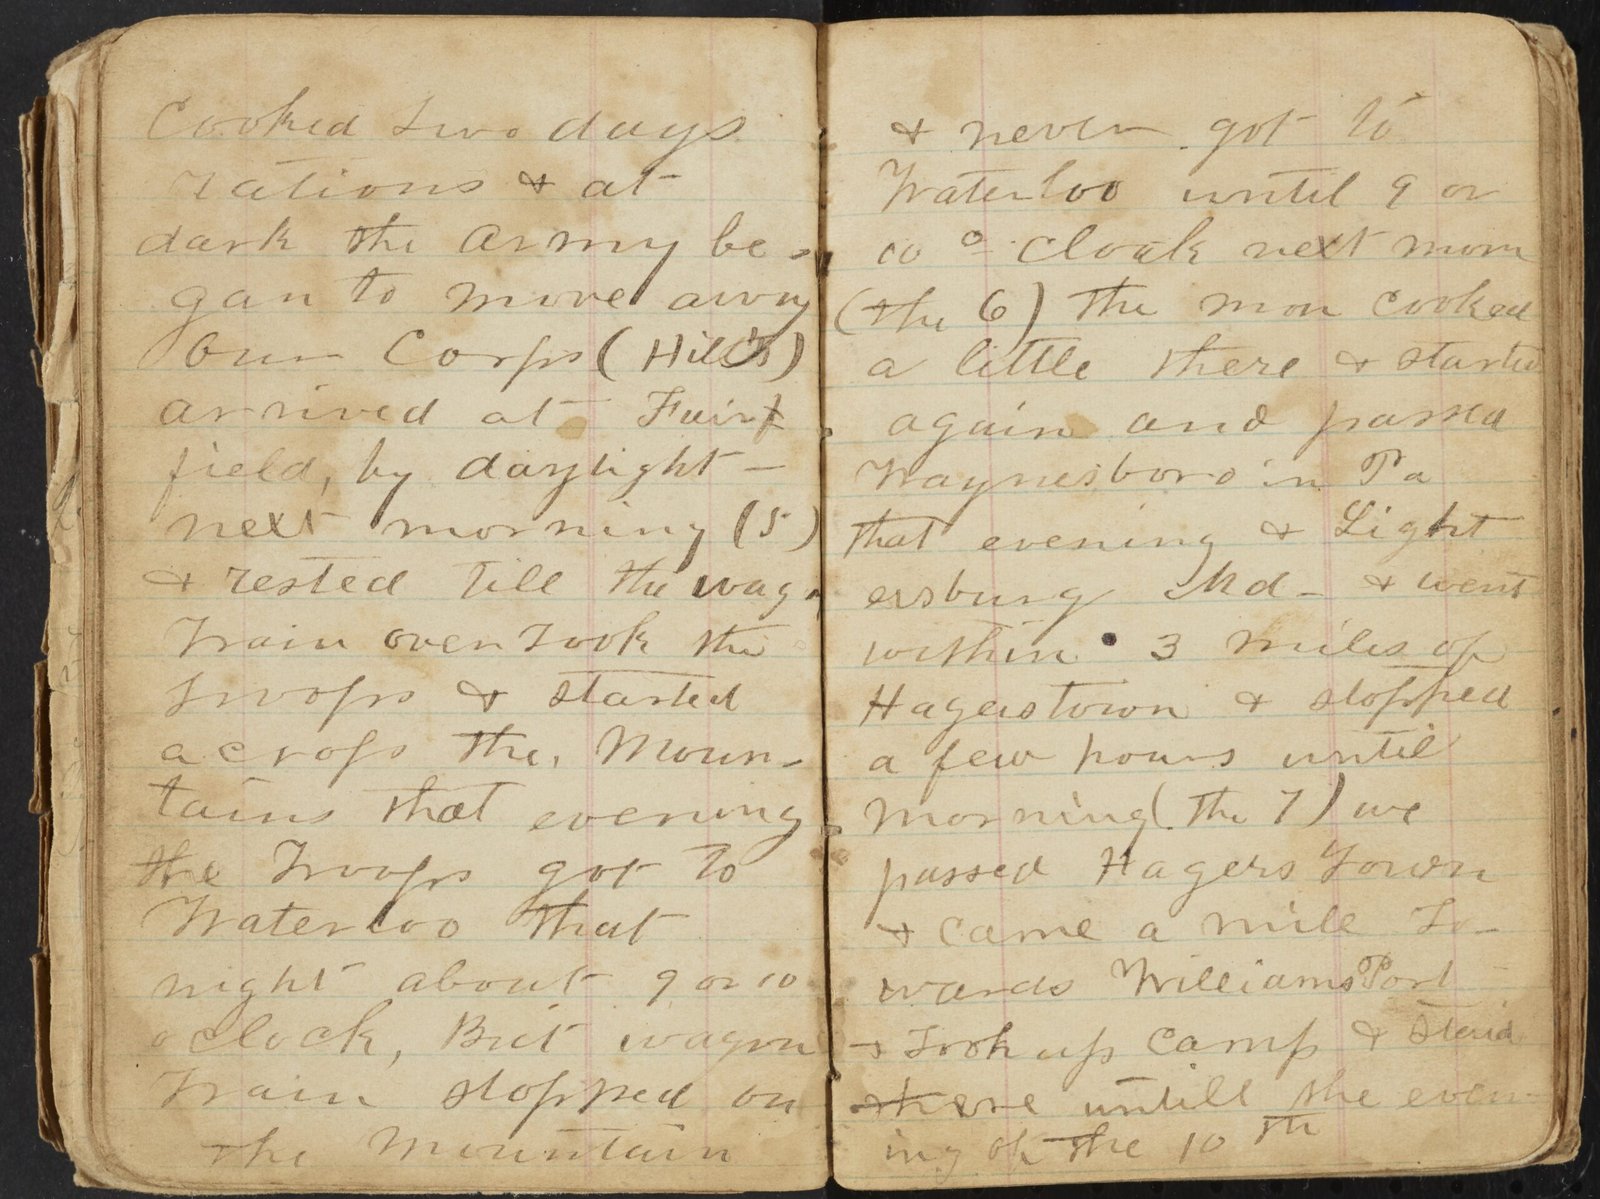 Cooked two days
rations & at
dark the army be-
gan to move away
Our Corps (Hill's)
arrived at Fair
field, by daylight -
next morning (5)
& rested till the wag,
train overtook the
troops & started
across the, Moun-
tains that evening
the troops got to
Waterloo that
night about 9 or 10
oclock, But wagon
train stopped on
the Mountain
& never got to
Waterloo until 9 or
10 o cloak next morn
(the 6) The mon cooked
a little there & started
again and passed
Waynesboro in Pa
that evening & Light
ersburg Md - & went
within 3 miles of
Hagerstown & stopped
a few hours until
morning (the 7) we
passed Hagers Town
& came a mile To-
wards WilliamsPort -
& Took up camp & staid
there untill the even-
ing of the 10 th